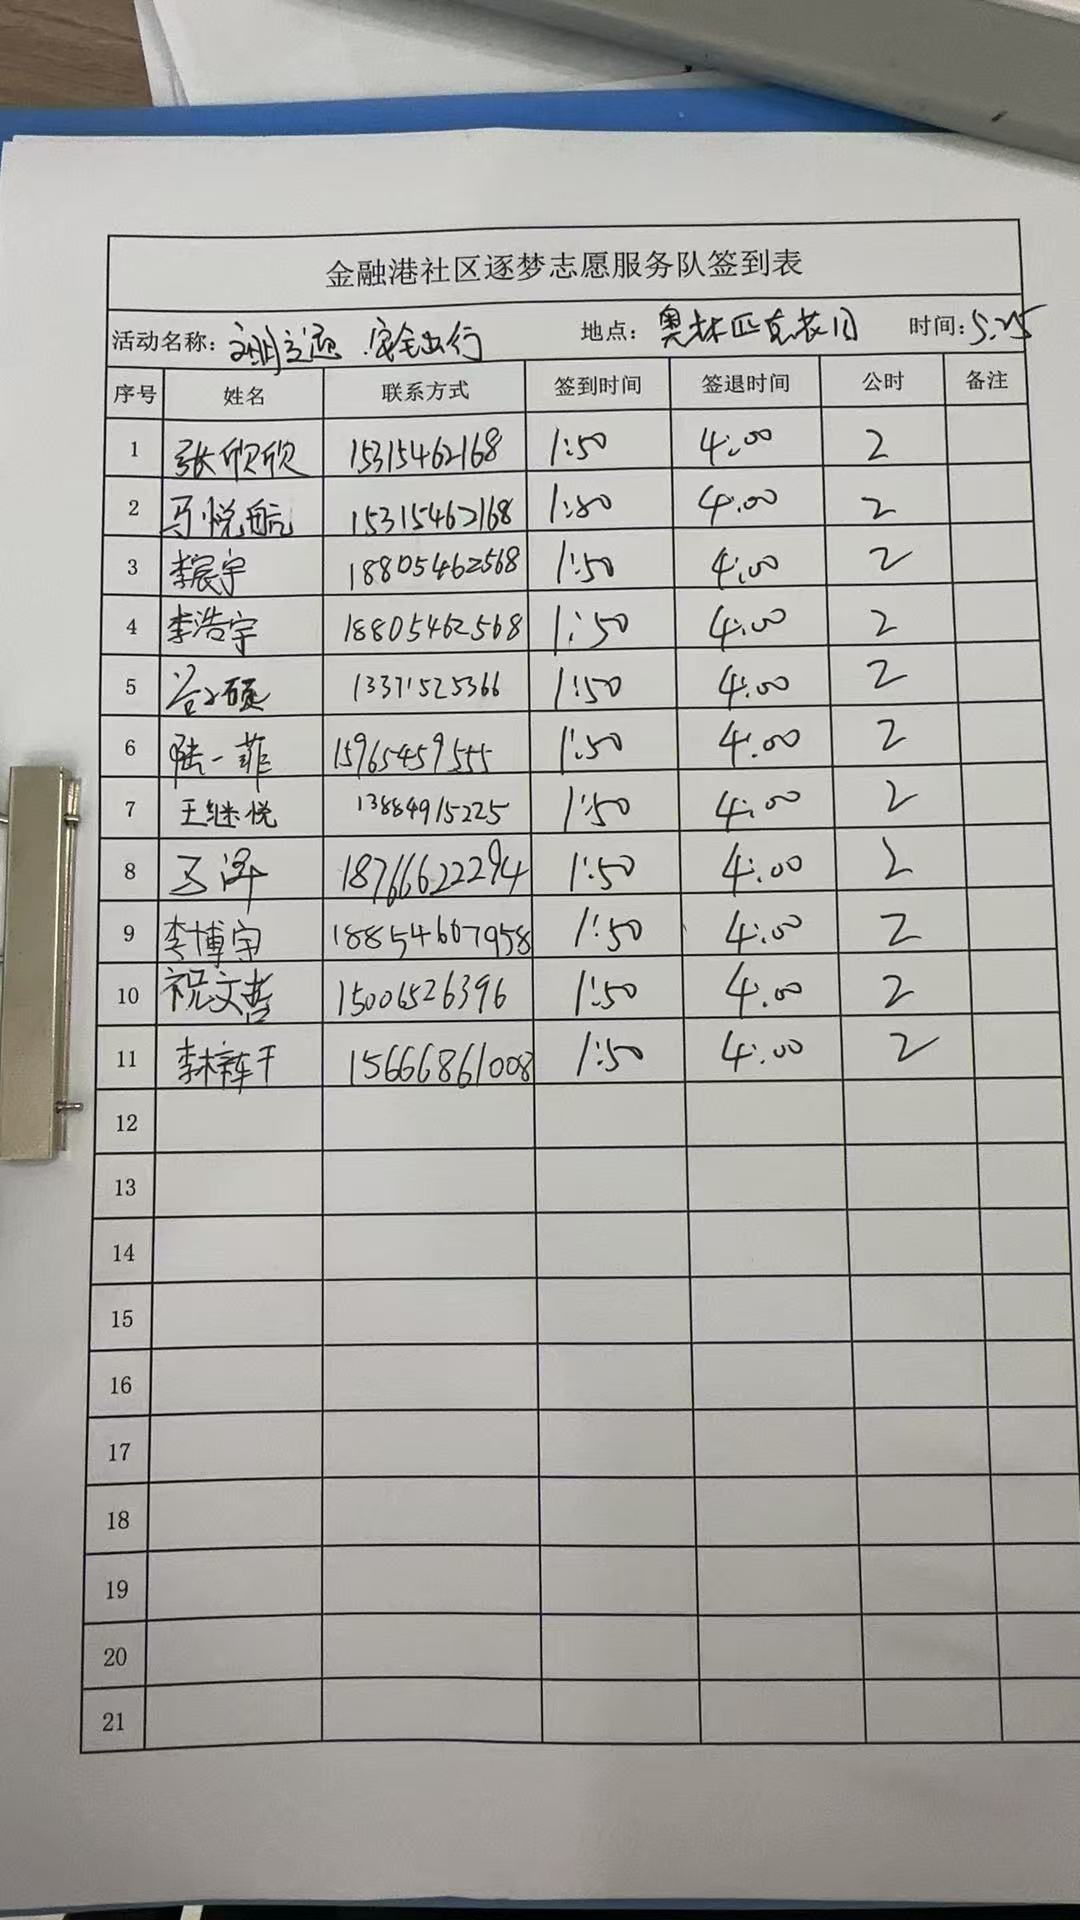 金融港社区逐梦志愿服务队签到表
活动名称: 文明交通 安全出行 地点: 奥林匹克花园 时间: 5.25
序号 姓名 联系方式 签到时间 签退时间 公时 备注
1 张欣欣 15315462168 1:50 4:00 2
2 马悦航 15315462168 1:50 4:00 2
3 李宸宇 18805462568 1:50 4:00 2
4 李浩宇 18805462568 1:50 4:00 2
5 谷硕 13371525366 1:50 4:00 2
6 陆一菲 15965459555 1:50 4:00 2
7 王继悦 13884915225 1:50 4:00 2
8 马泽 18766622294 1:50 4:00 2
9 李博宇 18854607958 1:50 4:00 2
10 祝文哲 15006526396 1:50 4:00 2
11 李梓 15666861008 1:50 4:00 2
12
13
14
15
16
17
18
19
20
21